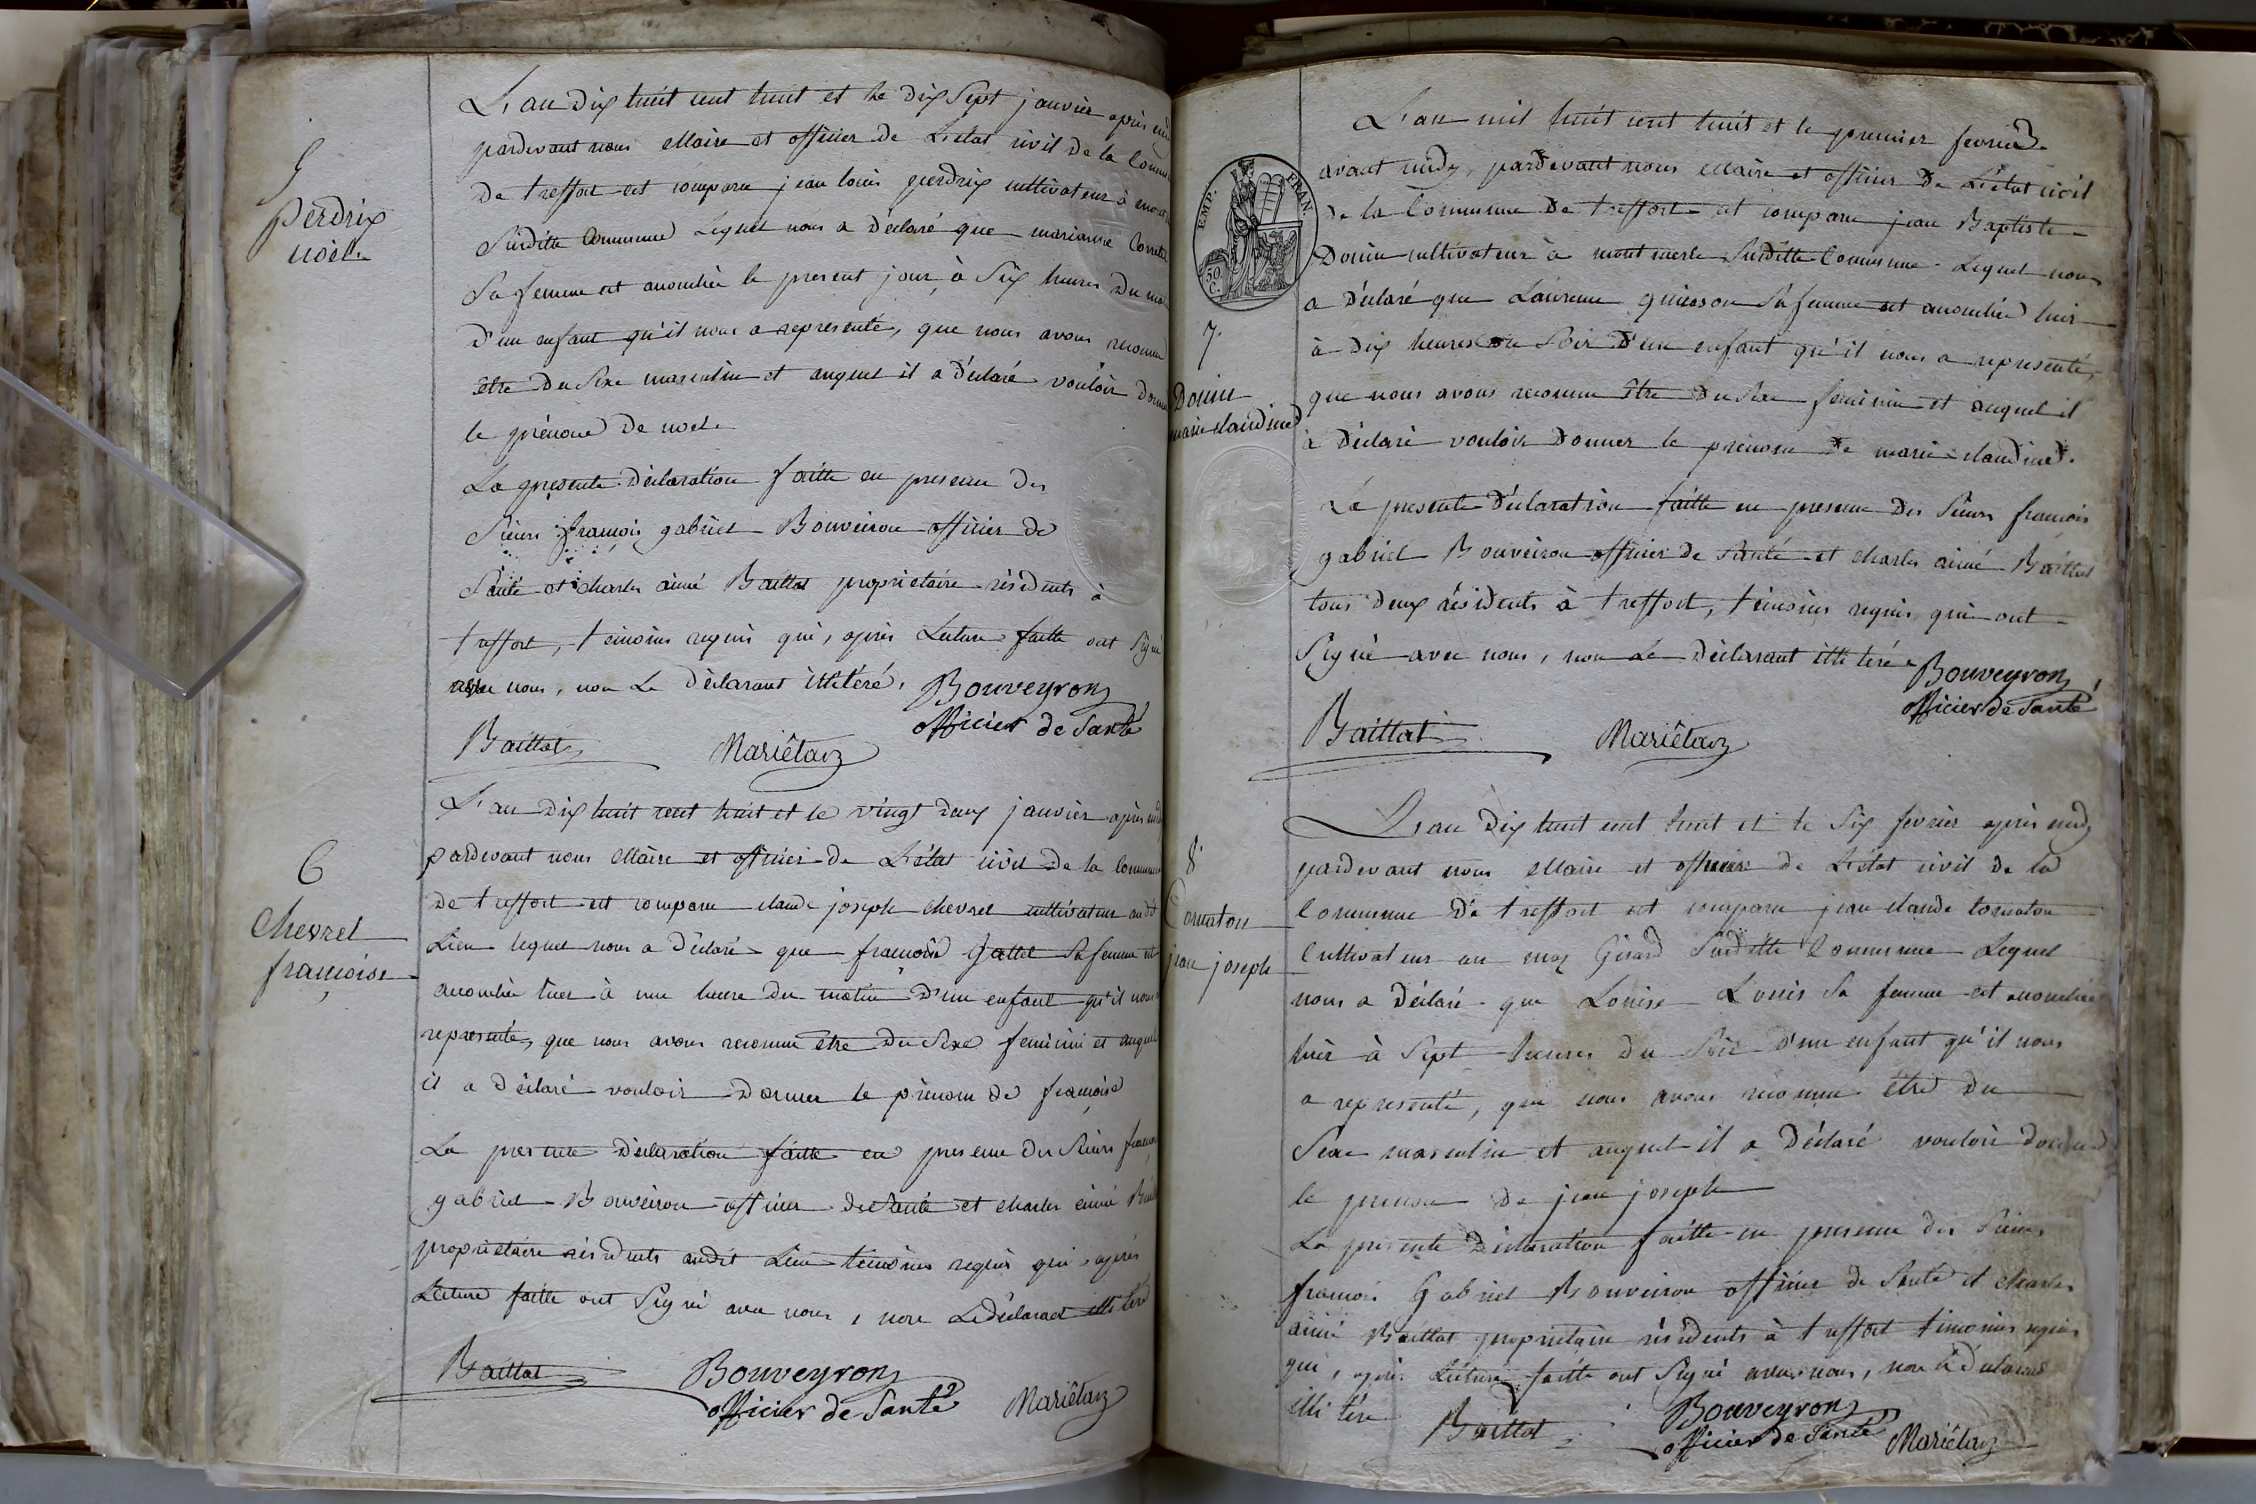 5
perdrix
noël.
L'an dix huit cent huit et le dix Sept janvier après midi
pardevant nous Maire et officier de L'état civil de la Commune
de treffort est comparu jean louis perdrix cultivateur à
Susditte Commune Lequel nous a déclaré que marianne
Sa femme est accouchée le present jour, à Six heures du
d'un enfant qu'il nous a representé, que nous avons reconnu
être du Sexe masculin et auquel il a déclaré vouloir donner
le prénom de noël.
La presente déclaration faitte en presence des
Sieurs françois gabriel Bouveiron officier de
Santé et charles aimé Baillat proprietaire résidents à
treffort, témoins requis qui, après Lecture faitte ont Signé
avec nous, non Le déclarant illitéré.
Bouveyron
officier de Santé
Baillat
Mariêtan
6
Chevrel
françoise
L'an dix huit cent huit et le vingt deux janvier après midi
pardevant nous Maire et officier de L'état civil de la Commune
de treffort est comparu claude joseph chevrel cultivateur audit
Lieu lequel nous a déclaré que françoise gallet Sa femme est
accouchée hier à une heure du matin d'un enfant qu'il nous
representé, que nous avons reconnu etre du Sexe feminin et auquel
il a déclaré vouloir donner le prénom de françoise
La presente déclaration faitte en presence des Sieurs françois
gabriel Bouveiron officier de Santé et charles aimé
proprietaire résidents audit Lieu témoins requis qui, après
Lecture faitte ont Signé avec nous, non Le déclarant illitéré
Baillat
Bouveyron
officier de Santé
Mariêtan
EMP. FRAN.
50 C.
7.
Donin
marie claudine
L'an mil huit cent huit et le premier fevrier
avant midy, pardevant nous Maire et officier de L'état civil
de la Commune de treffort est comparu jean Baptiste
Donin cultivateur à montmerle Susditte Commune Lequel nous
a déclaré que Laurence Sa femme est accouchée hier
à dix heures du Soir d'un enfant qu'il nous a representé,
que nous avons reconnu être du Sexe feminin et auquel il
à déclaré vouloir donner le prénom de marie claudine.
La presente déclaration faitte en presence des Sieurs françois
gabriel Bouveiron officier de Santé et charles aimé Baillat
tous deux résidents à treffort, témoins requis, qui ont
Signé avec nous, non Le déclarant illitéré
Bouveyron
officier de Santé
Baillat
Mariêtan
8.
Cornaton
jean joseph
L'an dix huit cent huit et le Six fevrier après midy
pardevant nous Maire et officier de L'état civil de la
Commune de treffort est comparu jean claude Cornaton
Cultivateur au Girard Susditte Commune Lequel
nous a déclaré que Louise Louis Sa femme est accouchée
hier à Sept heures du Soir d'un enfant qu'il nous
a representé, que nous avons reconnu être du
Sexe masculin et auquel il a déclaré vouloir donner
le prénom de jean joseph
La presente déclaration faitte en presence des Sieurs
françois Gabriel Bouveiron officier de Santé et charles
aimé Baillat proprietaire résidents à treffort témoins requis
qui, après Lecture faitte ont Signé avec nous, non le déclarant
illitéré
Baillat
Bouveyron
officier de Santé
Mariêtan